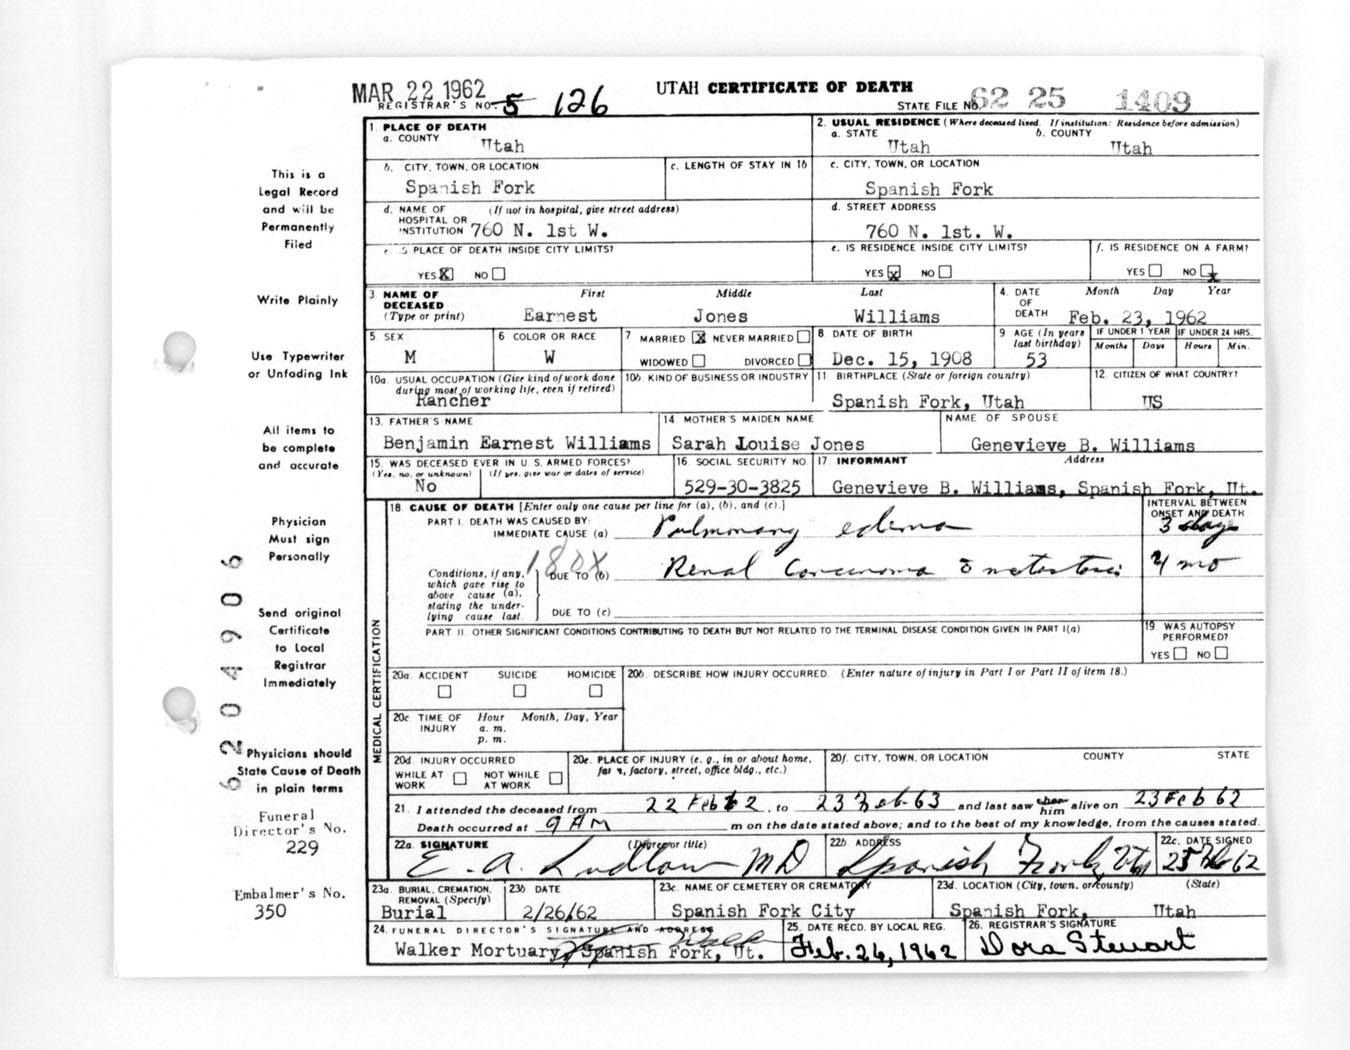 MAR 22 1962
UTAH CERTIFICATE OF DEATH
REGISTRAR'S NO. 5 126
STATE FILE NO. 62 25 1409
This is a
Legal Record
and will be
Permanently
Filed
Write Plainly
Use Typewriter
or Unfading Ink
All items to
be complete
and accurate
Physician
Must sign
Personally
Send original
Certificate
to Local
Registrar
Immediately
Physicians should
State Cause of Death
in plain terms
Funeral
Director's No.
229
Embalmer's No.
350
6204905
1. PLACE OF DEATH
a. COUNTY
Utah
2. USUAL RESIDENCE (Where deceased lived. If institution: Residence before admission)
a. STATE b. COUNTY
Utah Utah
b. CITY, TOWN, OR LOCATION
Spanish Fork
c. LENGTH OF STAY IN 1b
c. CITY, TOWN, OR LOCATION
Spanish Fork
d. NAME OF (If not in hospital, give street address)
HOSPITAL OR
INSTITUTION 760 N. 1st W.
d. STREET ADDRESS
760 N. 1st. W.
PLACE OF DEATH INSIDE CITY LIMITS?
YES X NO
e. IS RESIDENCE INSIDE CITY LIMITS?
YES X NO
f. IS RESIDENCE ON A FARM?
YES NO X
3 NAME OF DECEASED
(Type or print)
First Middle Last
Earnest Jones Williams
4. DATE OF DEATH
Month Day Year
Feb. 23, 1962
5. SEX
M
6 COLOR OR RACE
W
7 MARRIED X NEVER MARRIED
WIDOWED DIVORCED
8 DATE OF BIRTH
Dec. 15, 1908
9 AGE (In years last birthday)
53
IF UNDER 1 YEAR IF UNDER 24 HRS.
Months Days Hours Min.
10a. USUAL OCCUPATION (Give kind of work done
during most of working life, even if retired)
Rancher
10b. KIND OF BUSINESS OR INDUSTRY
11 BIRTHPLACE (State or foreign country)
Spanish Fork, Utah
12. CITIZEN OF WHAT COUNTRY?
US
13. FATHER'S NAME
Benjamin Earnest Williams
14 MOTHER'S MAIDEN NAME
Sarah Louise Jones
NAME OF SPOUSE
Genevieve B. Williams
15. WAS DECEASED EVER IN U.S. ARMED FORCES?
(Yes, no, or unknown) (If yes, give war or dates of service)
No
16. SOCIAL SECURITY NO.
529-30-3825
17 INFORMANT Address
Genevieve B. Williams, Spanish Fork, Ut.
MEDICAL CERTIFICATION
18. CAUSE OF DEATH [Enter only one cause per line for (a), (b), and (c).]
INTERVAL BETWEEN
ONSET AND DEATH
PART I. DEATH WAS CAUSED BY:
IMMEDIATE CAUSE (a) Pulmonary edema 3 days
180X
Conditions, if any,
which gave rise to
above cause (a),
stating the under-
lying cause last.
DUE TO (b) Renal Carcinoma c̄ metastasis 4 mo
DUE TO (c)
PART II. OTHER SIGNIFICANT CONDITIONS CONTRIBUTING TO DEATH BUT NOT RELATED TO THE TERMINAL DISEASE CONDITION GIVEN IN PART I(a)
19. WAS AUTOPSY
PERFORMED?
YES NO
20a. ACCIDENT SUICIDE HOMICIDE
20b. DESCRIBE HOW INJURY OCCURRED. (Enter nature of injury in Part I or Part II of item 18.)
20c. TIME OF INJURY
Hour Month, Day, Year
a. m.
p. m.
20d. INJURY OCCURRED
WHILE AT WORK NOT WHILE AT WORK
20e. PLACE OF INJURY (e. g., in or about home,
farm, factory, street, office bldg., etc.)
20f. CITY, TOWN, OR LOCATION COUNTY STATE
21. I attended the deceased from 22 Feb 62, to 23 Feb 63 and last saw her him alive on 23 Feb 62
Death occurred at 9 AM m on the date stated above; and to the best of my knowledge, from the causes stated.
22a. SIGNATURE (Degree or title)
E. A. Ludlow MD
22b. ADDRESS
Spanish Fork, Utah
22c. DATE SIGNED
25 Feb 62
23a. BURIAL, CREMATION,
REMOVAL (Specify)
Burial
23b. DATE
2/26/62
23c. NAME OF CEMETERY OR CREMATORY
Spanish Fork City
23d. LOCATION (City, town, or county) (State)
Spanish Fork, Utah
24. FUNERAL DIRECTOR'S SIGNATURE AND ADDRESS
Walker Mortuary, Spanish Fork, Ut.
25. DATE RECD. BY LOCAL REG.
Feb. 26, 1962
26. REGISTRAR'S SIGNATURE
Dora Stewart